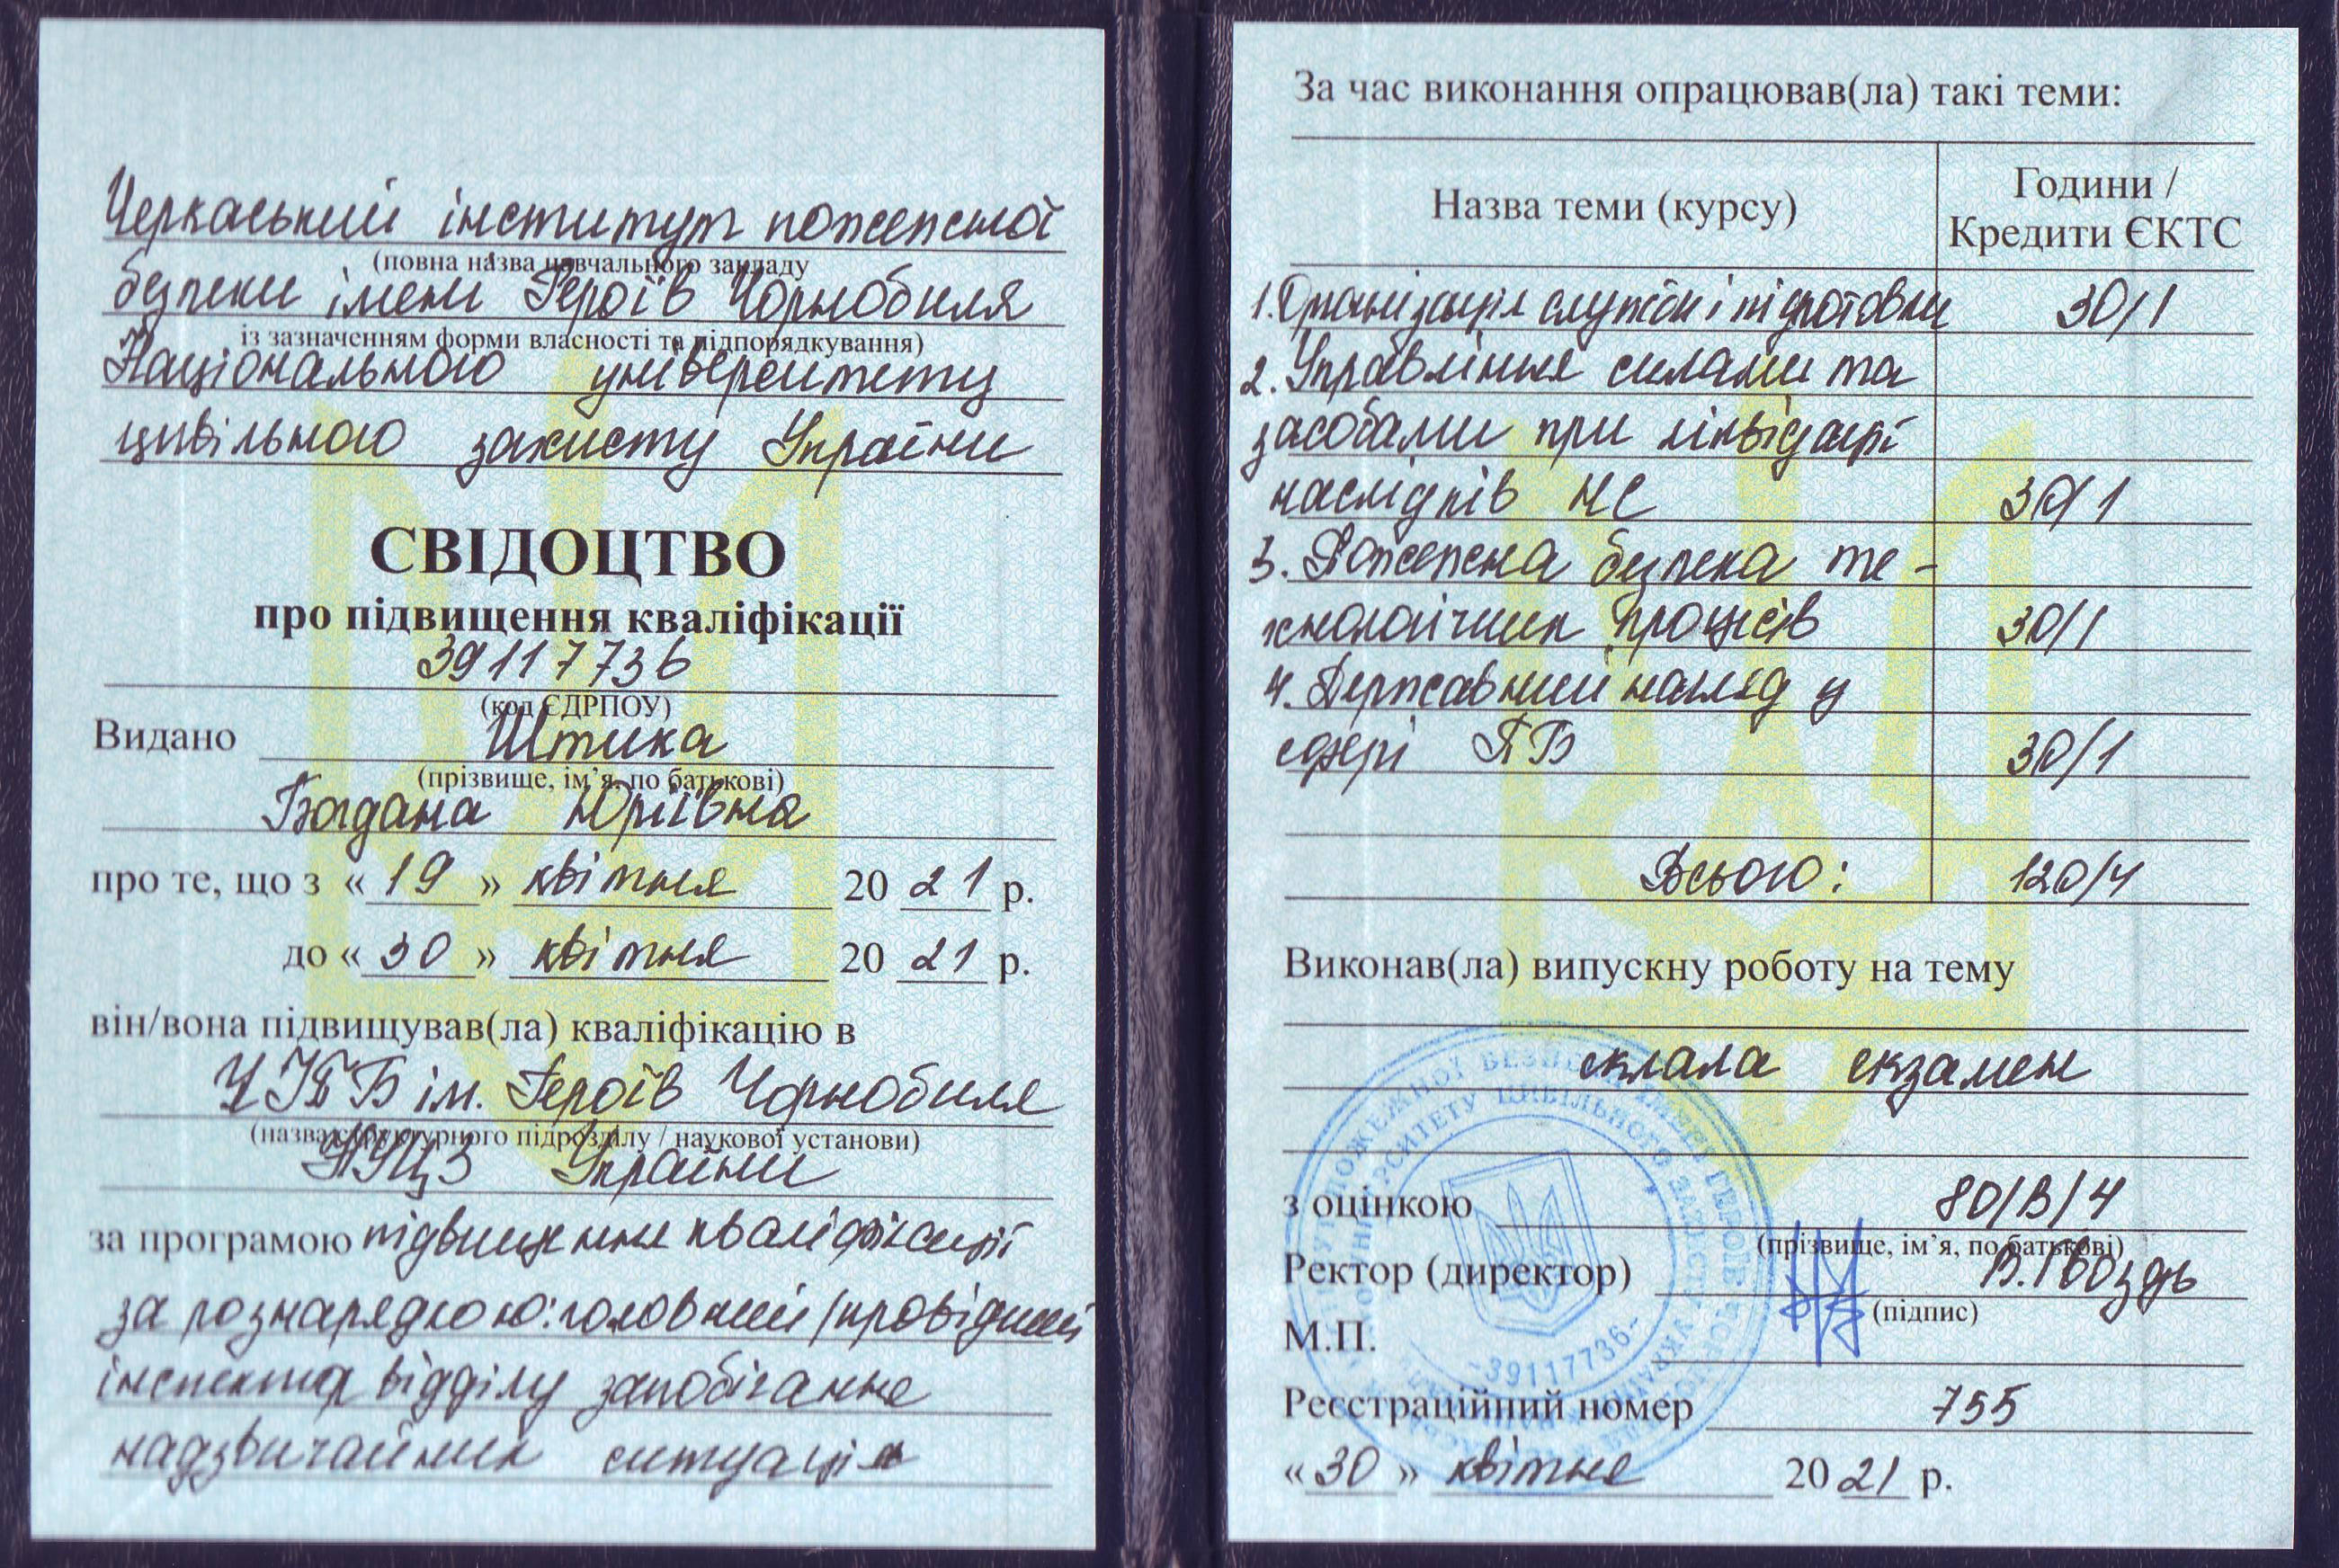 Черкаський інститут пожежної
(повна назва навчального закладу
безпеки імені Героїв Чорнобиля
із зазначенням форми власності та підпорядкування)
Національного університету
цивільного захисту України
СВІДОЦТВО
про підвищення кваліфікації
39117736
(код ЄДРПОУ)
Видано Штика
(прізвище, ім’я, по батькові)
Богдана Юріївна
про те, що з «19» квітня 2021 р.
до «30» квітня 2021 р.
він/вона підвищував(ла) кваліфікацію в
ЧІПБ ім. Героїв Чорнобиля
(назва структурного підрозділу / наукової установи)
НУЦЗ України
за програмою підвищення кваліфікації
за рознарядкою: головний/провідний
інспектор відділу запобігання
надзвичайних ситуацій
За час виконання опрацював(ла) такі теми:
Назва теми (курсу) Години / Кредити ЄКТС
1. Організація служби і підготовки 30/1
2. Управління силами та
засобами при ліквідації
наслідків НС 30/1
3. Пожежна безпека те-
хнологічних процесів 30/1
4. Державний нагляд у
сфері ПБ 30/1
Всього: 120/4
Виконав(ла) випускну роботу на тему
склала екзамен
з оцінкою 80/В/4
(прізвище, ім’я, по батькові)
Ректор (директор) В. Гвоздь
(підпис)
М.П.
39117736
Реєстраційний номер 755
«30» квітня 2021 р.